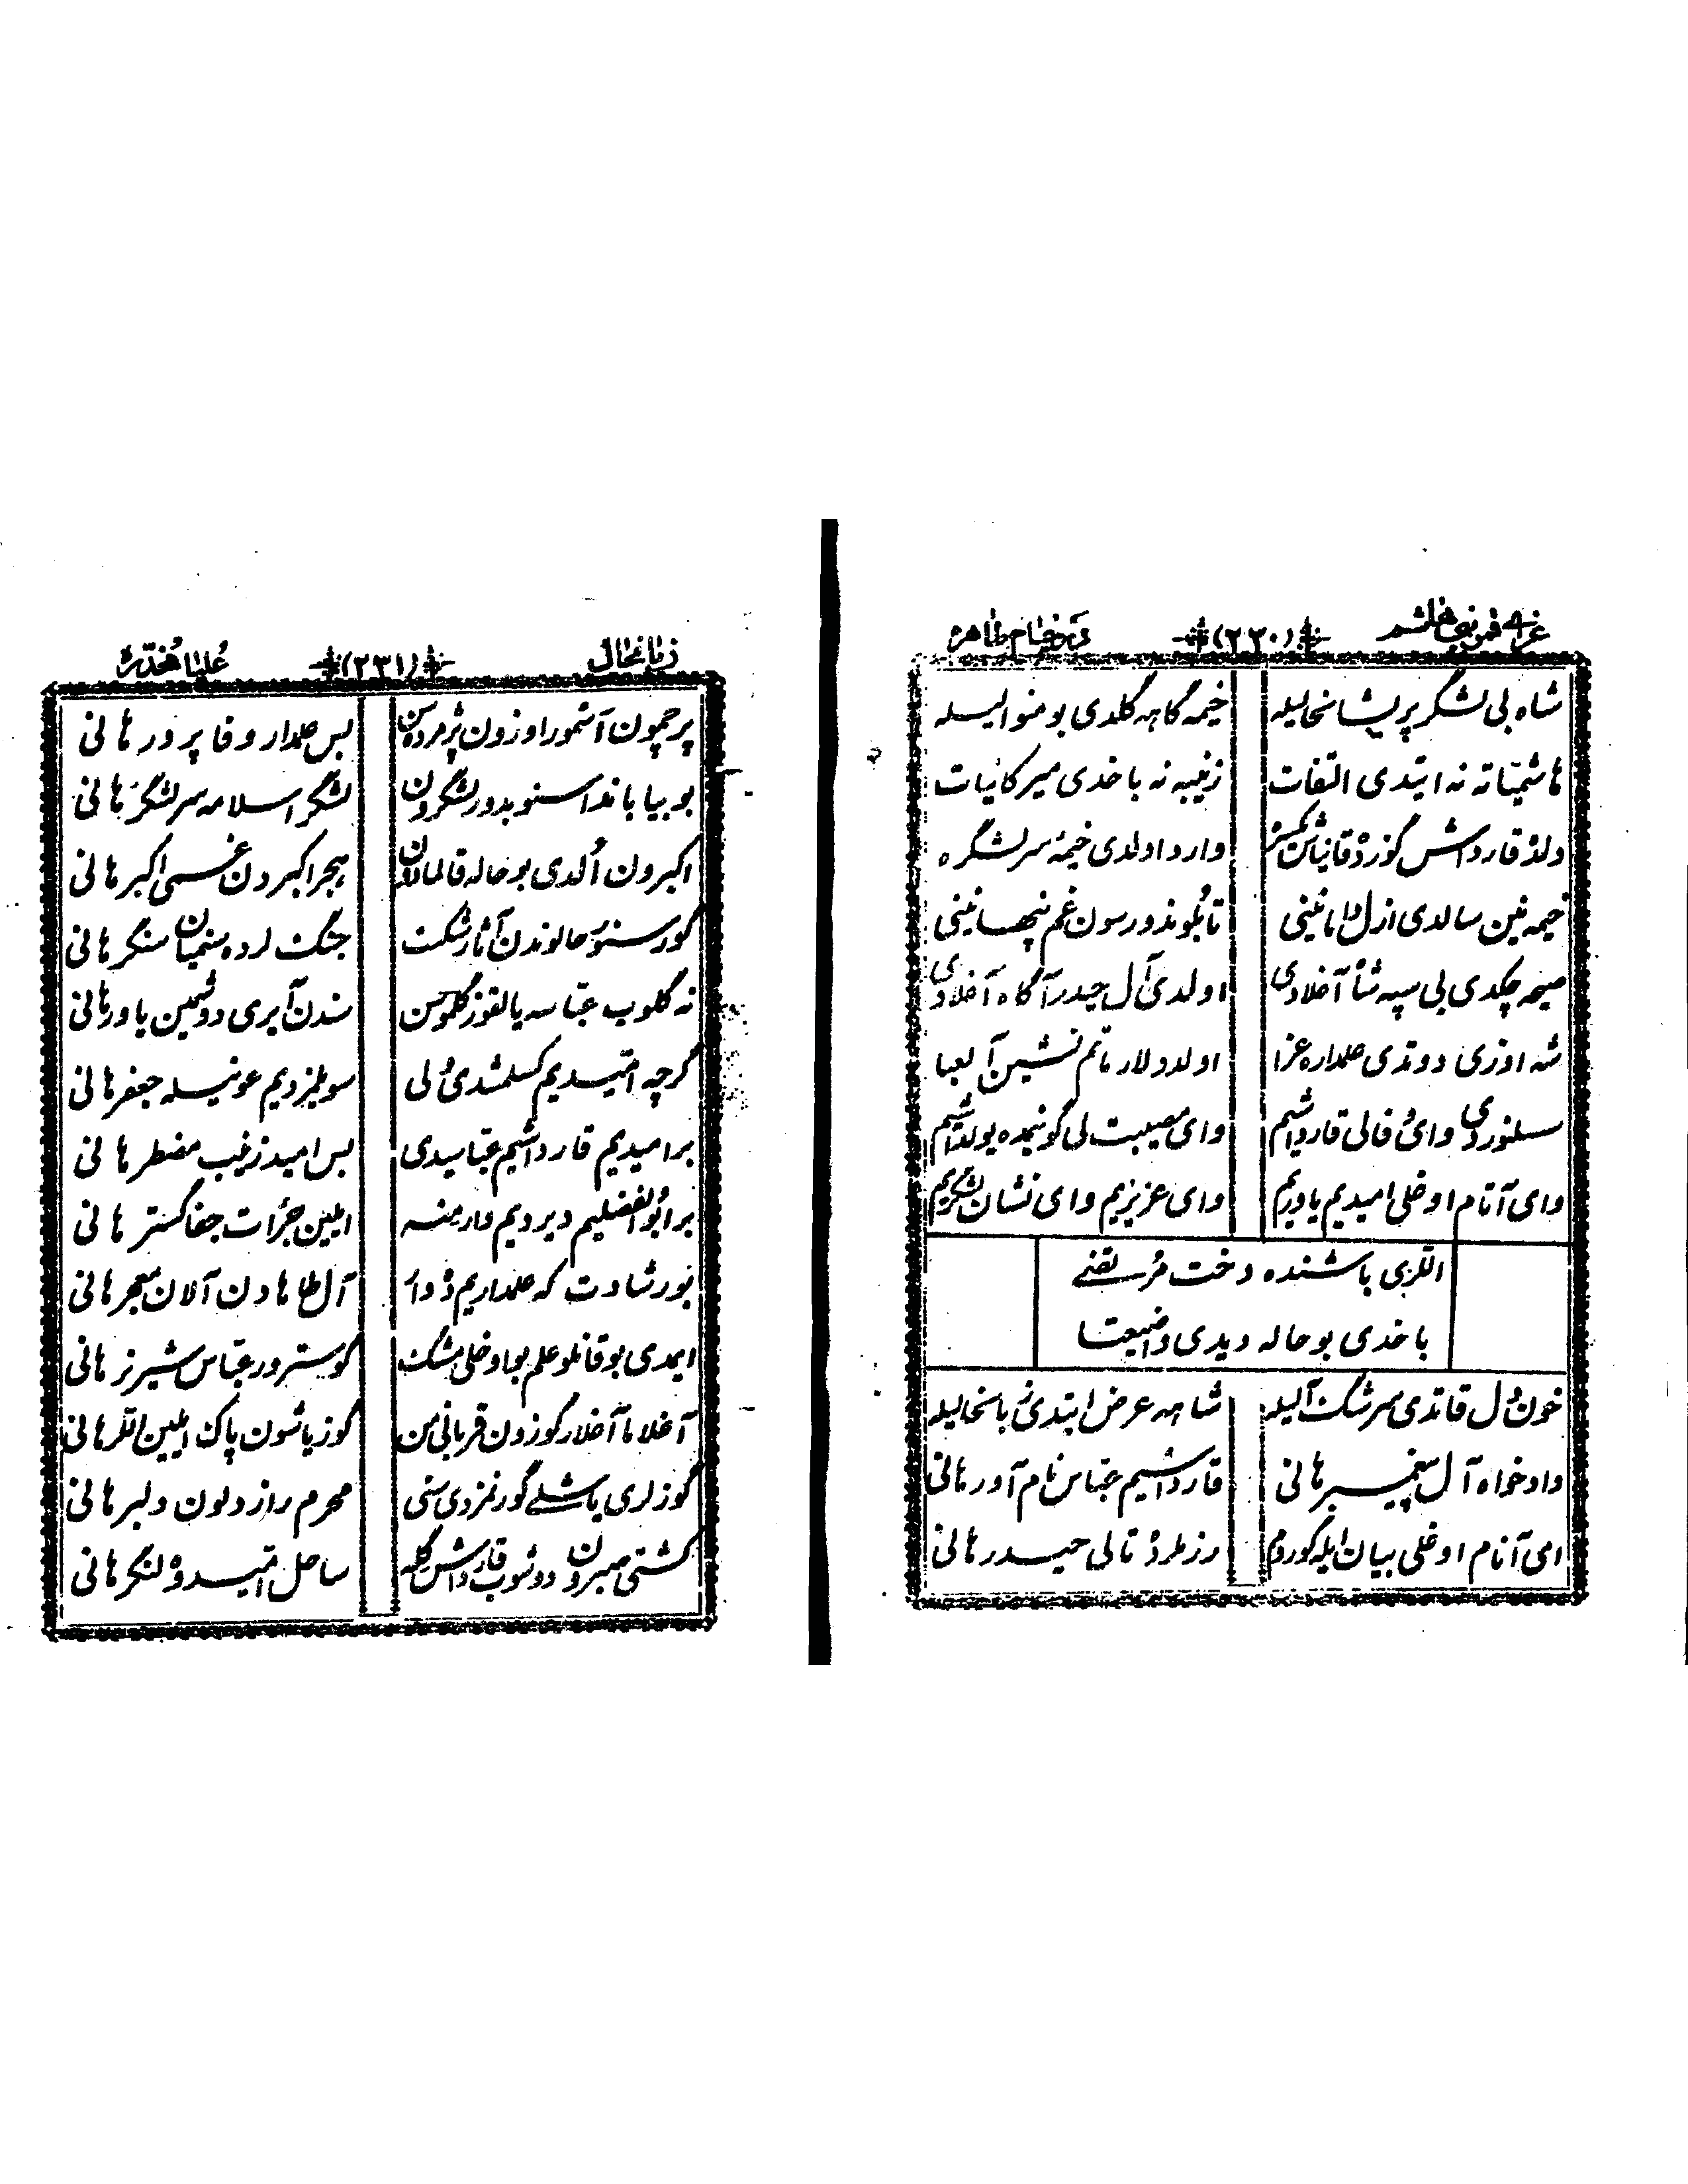 عزای قمر بنی هاشم (۲۳۰) در خیام طاهره
شاه بی لشگر پریشانحالیله خیمه گاهه گلدی بو منوالیله
هاشمیّاته نه ایتدی التفات زینبه نه باخدی میر کائنات
وارد اولدی خیمهٔ سرلشگره
خیمه نین سالدی ازل داماغینی تا بُلوندورسون غم پنهانینی
صیحه چکدی بی سپه شاه آغلادی اولدی آل حیدر آگاه آغلادی
شه اوزی دوتدی علمداره عزا اولدولار ماتم نشین آل عبا
سسلنوردی وای وفالی قارداشیم وای مصیبت لی گونیمده یولداشیم
وای آنام اوغلی امیدیم یاوریم وای عزیزیم وای نشان لشگریم
اللری باشنده دخت مرتضی
باخدی بو حاله دیدی واضیعتا
خون دل قاتدی سرشک آلیله شاهه عرض ایتدی زبانحالیله
دادخواه آل پیغمبر هانی قارداشیم عبّاس نام آور هانی
ای آنام اوغلی بیان ایله گوروم رزملرده تالی حیدر هانی
زبانحال (۲۳۱) عُلیا مُخدّره
پرچمون آتمور اوزون پژمرده سن بس علمدار وفا پرور هانی
بو بیاباندا سنوبدور لشگرون لشگر اسلامه سرلشگر هانی
اکبرون اُلدی بو حاله قالمادون هجر اکبردن غمی اکبر هانی
گورسنور حالوندن آثار شکست جنگ لرده پشتیبان سنگر هانی
نه گلوب عبّاسه یالقوز گلموسن سندن آیری دوشمین یاور هانی
گرچه امّیدیم کسلمشدی ولی سویلمزدیم عونیله جعفر هانی
بر امیدیم قارداشیم عبّاسیدی بس امید زینب مضطر هانی
بر ابوالفضلیم دیردیم وار منه ایلین جرأت جفا گستر هانی
بویورشادت که علمداریم آل طاهادن آلان معجر هانی
ایمدی بو قانلو علم بو اوخلی مشک گوستروّر عبّاس شیر نر هانی
آغلاما آغلار گوزون قربانی من گوز یاشون پاک ایلین اللر هانی
گوزلری یاشلی گورنمزدی سنی محرم راز دلون دلبر هانی
کشتی صبرون دوشوب قارداش گله ساحل امّیدوه لنگر هانی